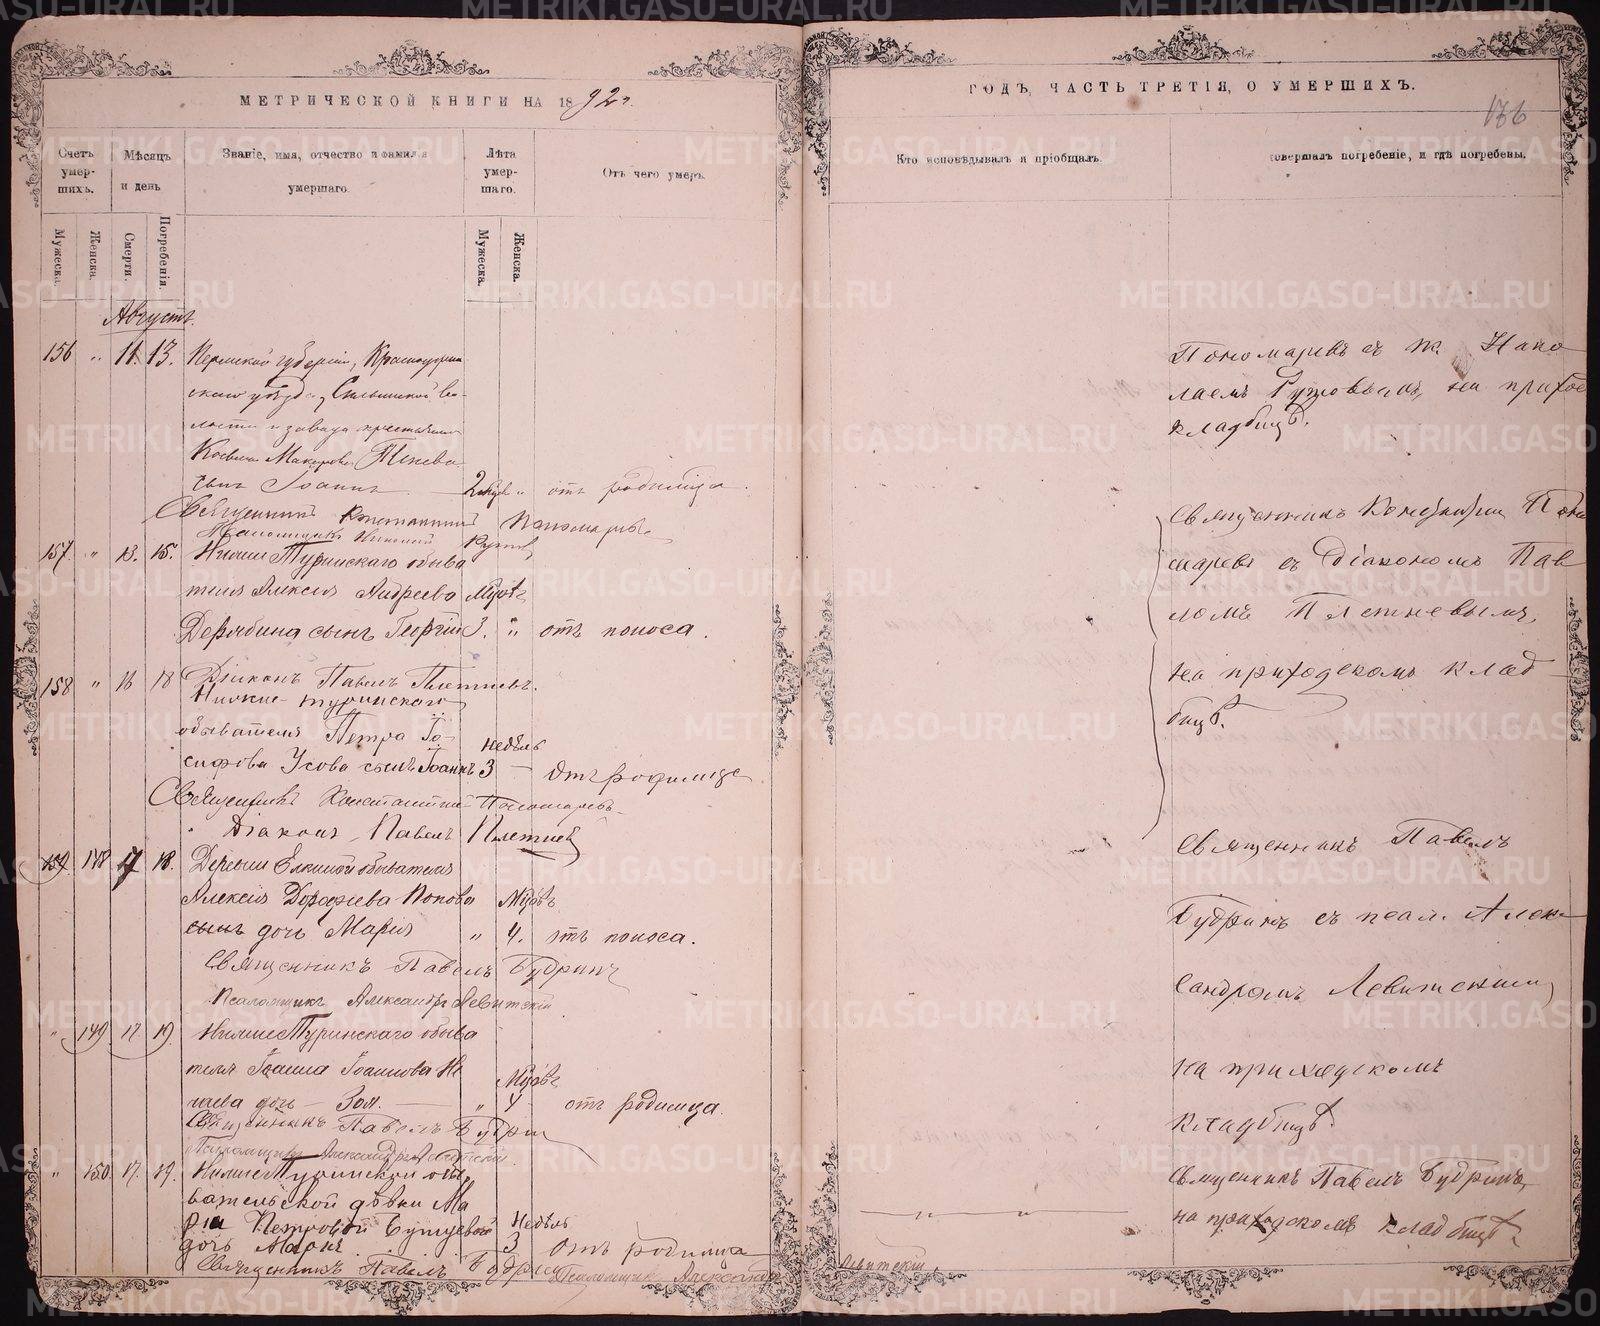 МЕТРИЧЕСКОЙ КНИГИ НА 1892 г.
Счетъ умер-шихъ.
Мѣсяцъ и день
Званіе, имя, отчество и фамилія умершаго.
Лѣта умер-шаго.
Отъ чего умеръ.
Мужеска.
Женска.
Смерти.
Погребенія.
Мужеска.
Женска.
Августъ.
156 " 11. 13. Пермской губерніи, Красноуфим
скаго уѣзда,
лости и завода крестьянина
Макарова
сынъ Іоаннъ " отъ родимца.
Священникъ Константинъ Пономаревъ
Псаломщикъ Николай
157 " 13. 15. Нижне Туринскаго обыва
теля Алексія Андреева Мѣсяц
Дерябина сынъ Георгій 3. " отъ поноса.
Діаконъ Павелъ Плетневъ.
158 " 16 18 Нижне-туринскаго
обывателя Петра Іо-
сифова Усова сынъ Іоаннъ недѣль 3 — Отъ родимца
Священникъ Константинъ Пономаревъ
Діаконъ Павелъ Плетневъ
159 148 17 18. Деревни Елкиной обывателя
Алексія Дорофеева Попова
сынъ дочь Марія " 4. отъ поноса.
Священникъ Павелъ Будринъ
Псаломщикъ Александръ Левитскій
" 149 17 19. Нижне Туринскаго обыва
теля Іоанна Іоаннова Не
чаева дочь — Зоя. — " 4 отъ родимца.
Священникъ Павелъ Будрин
Псаломщикъ Александръ Левитскій
" 150. 17. 19. Нижне Туринской обы
вательской дѣвки Ма
ріи Петровой Недѣль
дочь 3 Отъ родимца
Священникъ Павелъ Будрин Псаломщик Александръ Левитскій.
ГОДЪ, ЧАСТЬ ТРЕТІЯ, О УМЕРШИХЪ.
176
Кто исповѣдывалъ и пріобщалъ.
совершалъ погребеніе, и гдѣ погребены.
Пономаревъ съ Нико
лаемъ на приход
кладбищѣ.
Священникъ Константин Поно
маревъ съ Діакономъ Пав
ломъ Плетневымъ,
на приходскомъ клад
бищѣ.
Священникъ Павелъ
Будринъ съ псал. Алек-
сандромъ Левитскимъ
на приходскомъ
кладбищѣ
Священникъ Павелъ Будринъ,
на приходскомъ кладбищѣ
METRIKI.GASO-URAL.RU